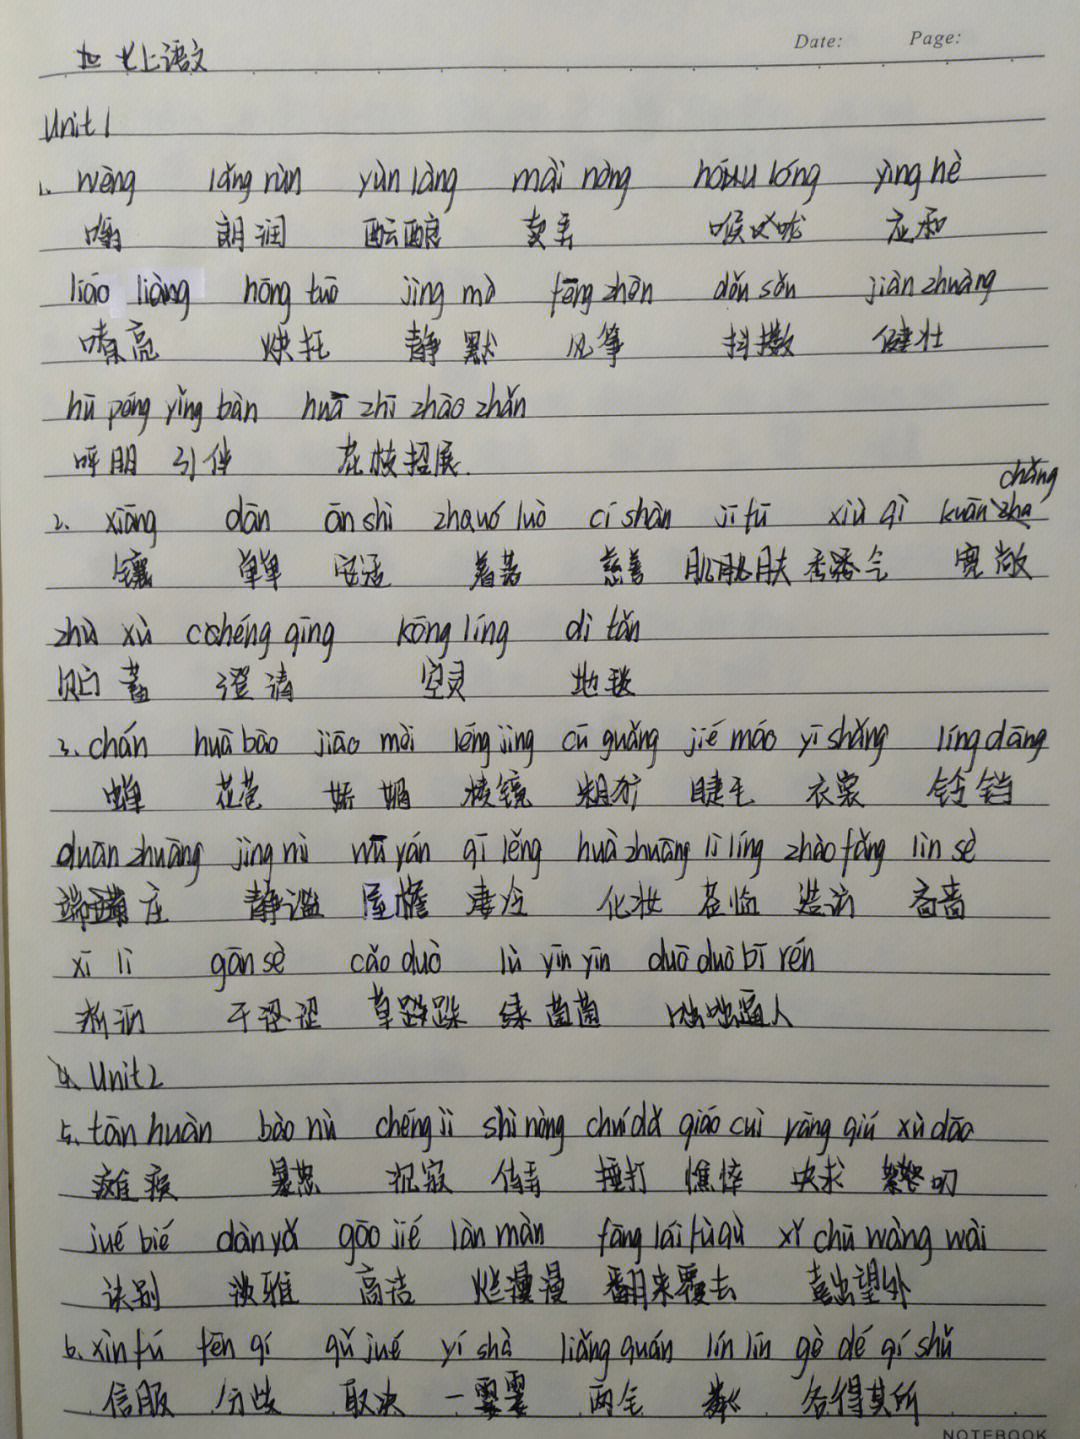 Date: Page:
七上语文
Unit 1
1. wēng lǎng rùn yùn làng mài nòng hóu lóng yìng hè
嗡 朗润 酝酿 卖弄 喉咙 应和
liáo liàng hōng tuō jìng mò fēng zhēn dǒu sǒu jiàn zhuàng
嘹亮 烘托 静默 风筝 抖擞 健壮
hū péng yǐng bàn huā zhī zhāo zhǎn
呼朋引伴 花枝招展
chǎng
2. xiāng dān ān shì zhuó luò cí shàn jī fū xiù qì kuān
镶 单 安适 着落 慈善 肌肤 秀气 宽敞
zhù xù chéng qīng kōng líng dì tǎn
贮蓄 澄清 空灵 地毯
3. chán huā bāo jiāo mèi léng jìng cū guǎng jié máo yī shǎng líng dāng
蝉 花苞 娇媚 棱镜 粗犷 睫毛 衣裳 铃铛
duān zhuāng jìng mì wū yán qī lěng huà zhuāng lì líng zhào fǎng lìn sè
端庄 静谧 屋檐 凄冷 化妆 莅临 造访 吝啬
xī lì gān sè cǎo duò lǜ yīn yīn duō duō bī rén
淅沥 干涩 草垛 绿茵茵 咄咄逼人
4. Unit 2
5. tān huàn bào nù chéng jì shì nòng chuí dǎ qiáo cuì yāng qiú xù dāo
瘫痪 暴怒 沉寂 侍弄 捶打 憔悴 央求 絮叨
jué bié dàn yǎ gāo jié làn màn fāng lái fù qù xǐ chū wàng wài
诀别 淡雅 高洁 烂漫 翻来覆去 喜出望外
6. xìn fú fēn qí qǔ jué yí shà liǎng quán lín lín gè dé qí shǔ
信服 分歧 取决 一霎 两全 粼粼 各得其所
NOTEBOOK